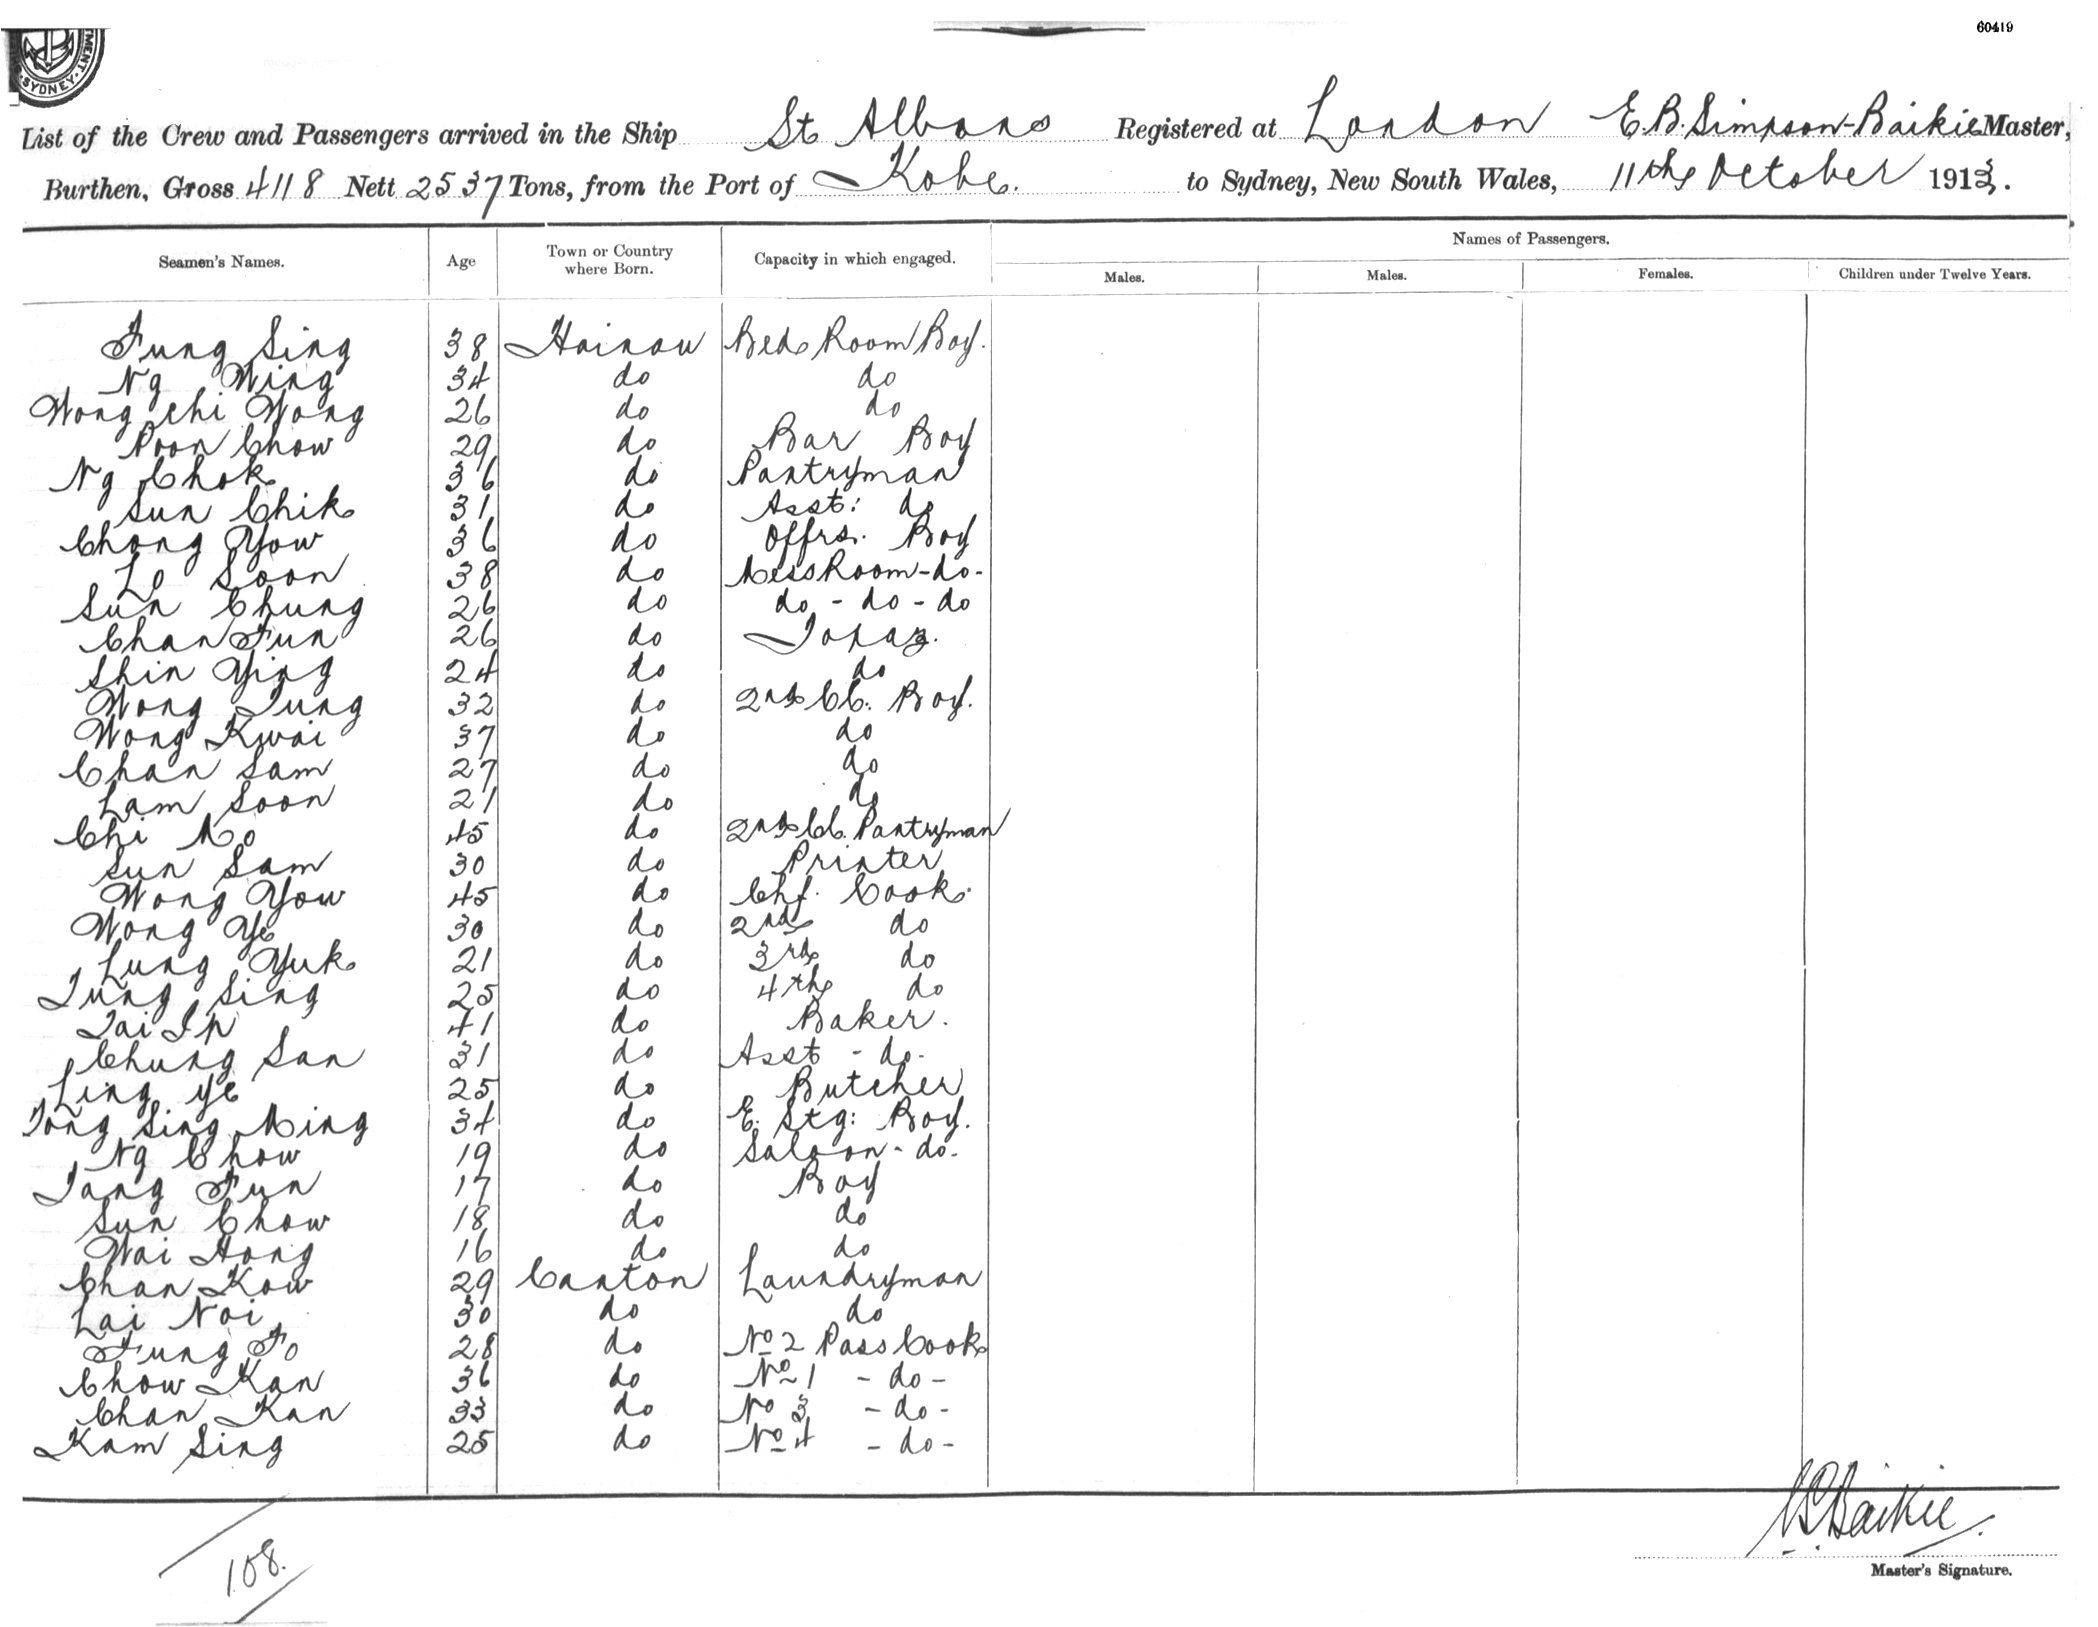 60419
MENT · SYDNEY ·
List of the Crew and Passengers arrived in the Ship St Albans Registered at London E.B. Simpson-Baikie Master,
Burthen, Gross 4118 Nett 2537 Tons, from the Port of Kobe. to Sydney, New South Wales, 11th October 1913.
Names of Passengers.
Seamen's Names. Age Town or Country where Born. Capacity in which engaged. Males. Males. Females. Children under Twelve Years.
Fung Sing 38 Hainau Bed Room Boy.
Ng Wing 34 do do
Wong Chi Wong 26 do do
Poon Chow 29 do Bar Boy
Ng Chok 36 do Pantryman
Sun Chik 31 do Asst: do
Chong Yow 36 do Offrs. Boy
Lo Soon 38 do Mess Room -do-
Sun Chung 26 do do - do - do
Chan Fun 26 do Topaz.
Shin Ying 24 do do
Wong Tung 32 do 2nd Cl. Boy.
Wong Kwai 37 do do
Chan Sam 27 do do
Lam Soon 21 do do
Chi Mo 45 do 2nd Cl. Pantryman
Sun Sam 30 do Printer
Wong Yow 45 do Chf. Cook.
Wong Ye 30 do 2nd do
Lung Yuk 21 do 3rd do
Tung Sing 25 do 4th do
Tai Ip 41 do Baker.
Chung San 31 do Asst - do -
Ling Ye 25 do Butcher
Tong Sing Ming 34 do E. Stg: Boy.
Ng Chow 19 do Saloon - do -
Tang Fun 17 do Boy
Sun Chow 18 do do
Wai Hong 16 do do
Chan Kow 29 Canton Laundryman
Lai Noi 30 do do
Fung Fo 28 do No 2 Pass Cook
Chow Kan 36 do No 1 - do -
Chan Kan 33 do No 3 - do -
Kam Sing 25 do No 4 - do -
108.
Baikie.
Master's Signature.